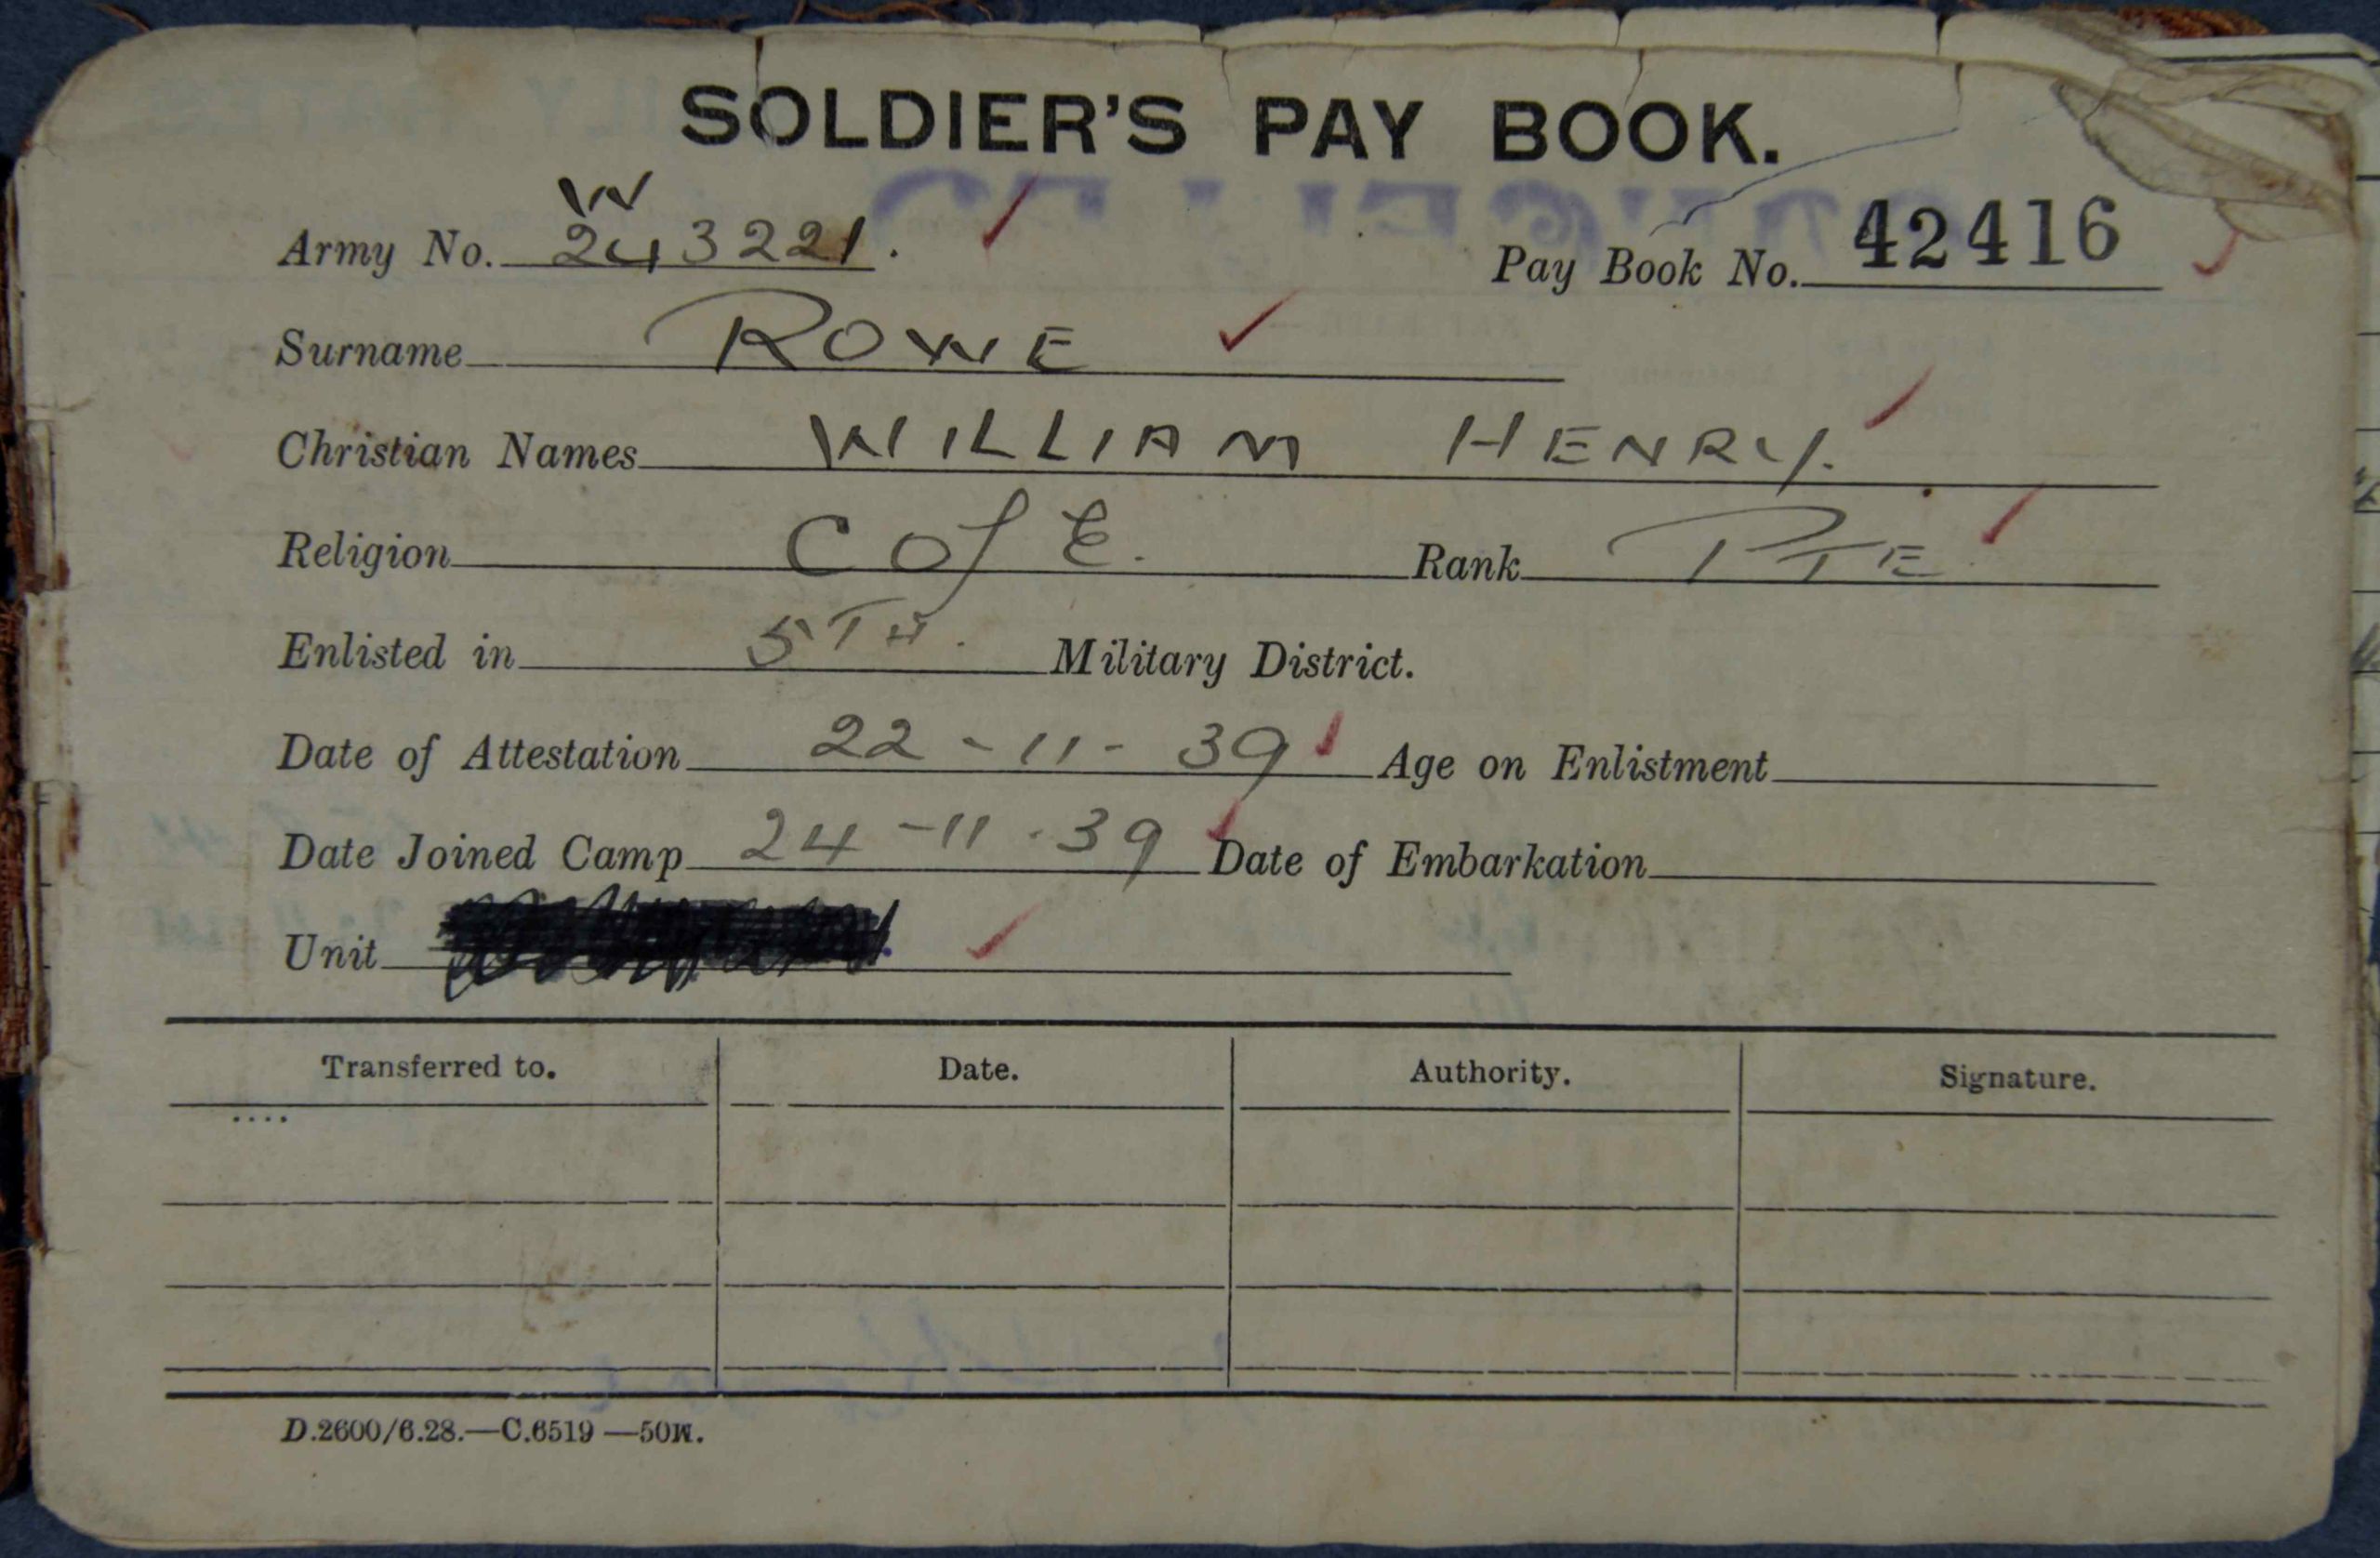 SOLDIER'S PAY BOOK.
W
Army No. 243221. Pay Book No. 42416
Surname ROWE
Christian Names WILLIAM HENRY.
Religion C of E. Rank PTE
Enlisted in 5TH. Military District.
Date of Attestation 22-11-39 Age on Enlistment
Date Joined Camp 24-11-39 Date of Embarkation
Unit
Transferred to. Date. Authority. Signature.
D.2600/6.28.—C.6519—50M.